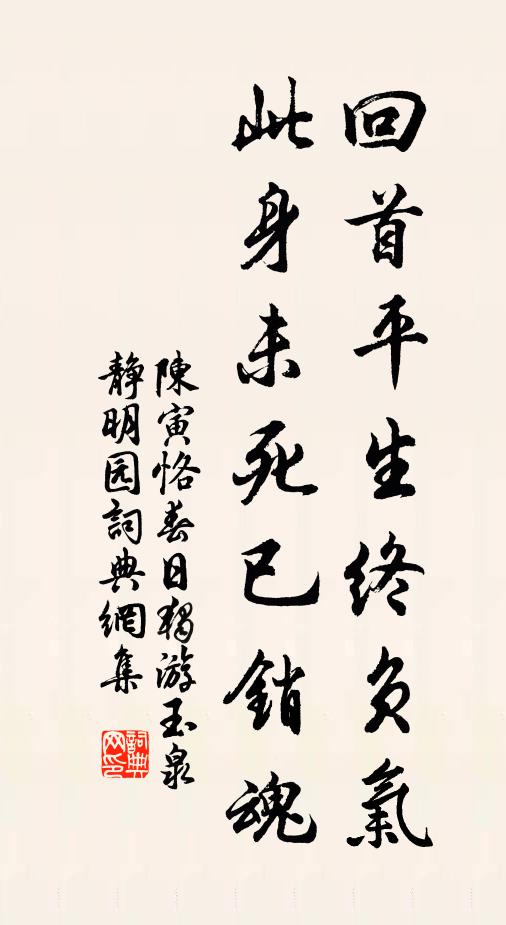 回首平生終負氣
此身未死已銷魂
陳寅恪春日獨游玉泉
靜明园詞典網集
詞典网印